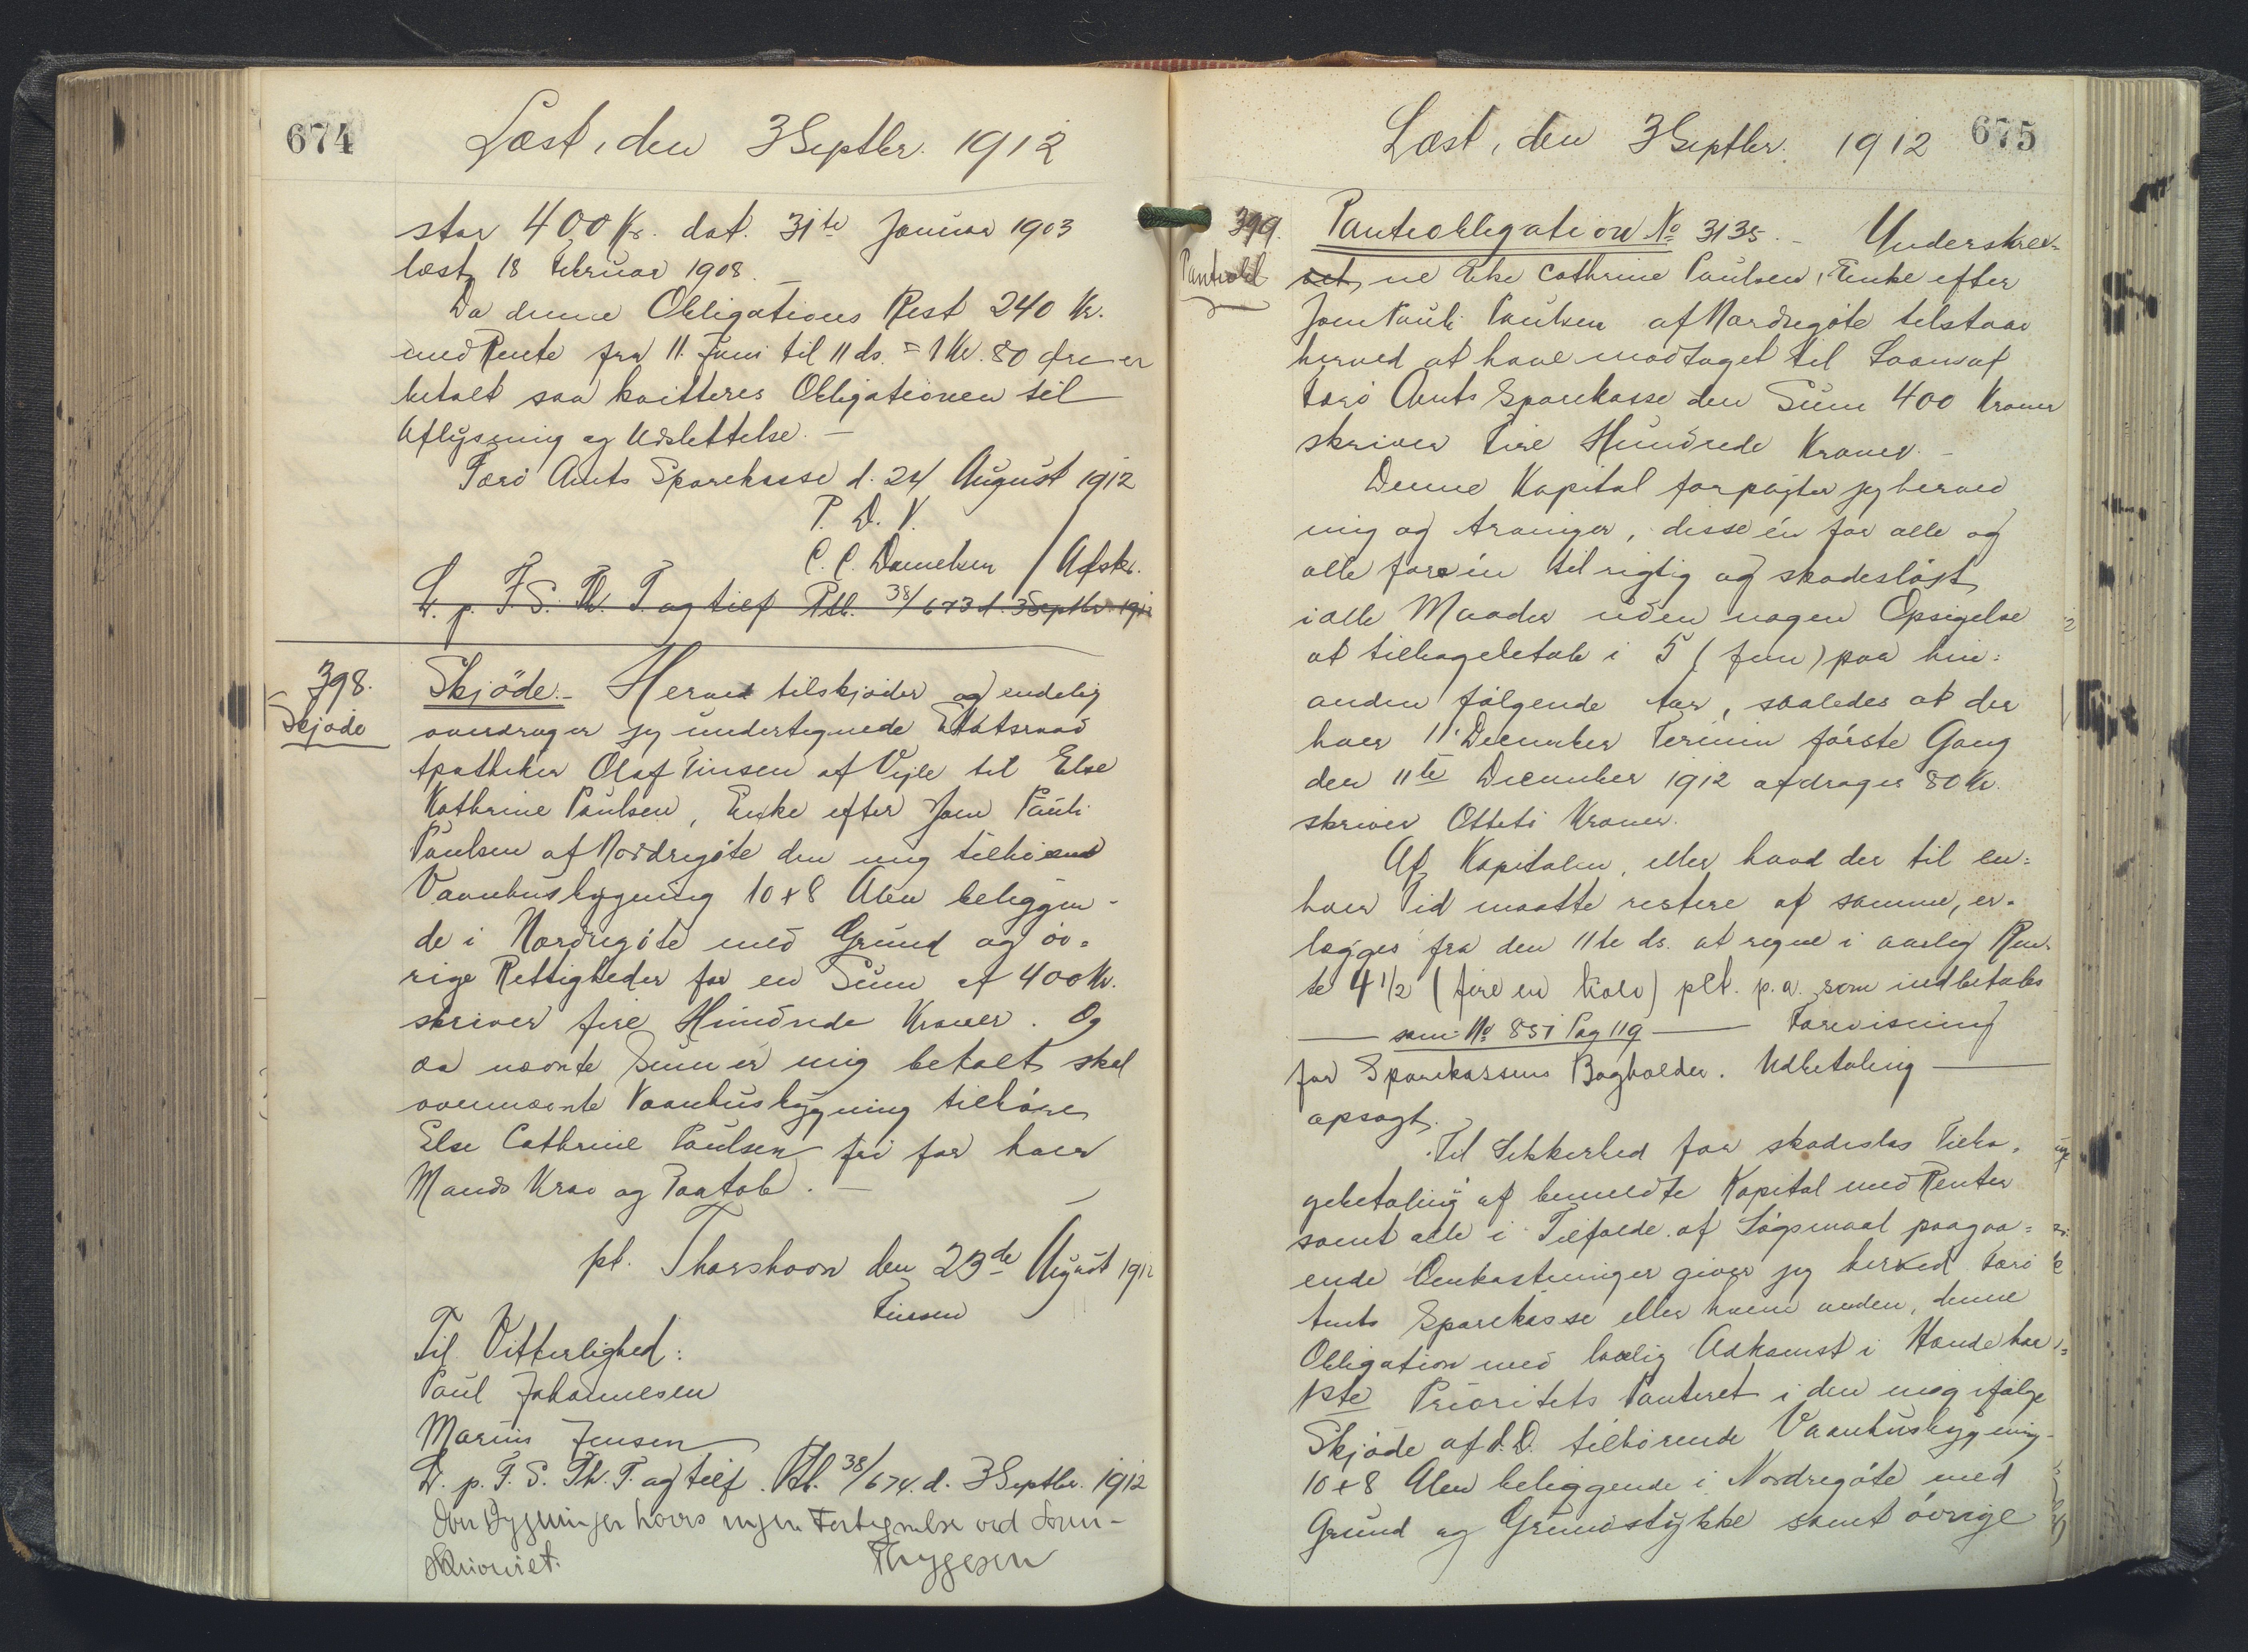 674
Læst, den 3 Septbr. 1912
stor 400 Kr. dat. 31te Januar 1903
læst 18 Februar 1908. —
Da denne Obligations Rest 240 Kr.
med Rente fra 11. Juni til 11 ds. = 1 Kr. 80 Øre er
betalt saa kvitteres Obligationen til
Aflysning og Udslettelse. —
Færø Amts Sparekasse d. 24 August 1912
P. D. V.
C. C. Danielsen / Afskr.
L. p. F. S. Th. T. og tilf Ptb. 38/673 d. 3 Septbr 1912
398.
Skjøde
Skjöde. — Herved tilskjøder og endelig
overdrager jeg undertegnede Etatsraad
Apotheker Olaf Finsen af Vejle til Else
Kathrine Paulsen, Enke efter Joen Pauli
Paulsen af Nordregøte den mig tilhørend
Vaanhusbygning 10 + 8 Alen beliggen-
de i Nordregøte med Grund og øv-
rige Rettigheder for en Sum af 400 Kr.
skriver fire Hundrede Kroner. Og
da nævnte Sum er mig betalt skal
ovennævnte Vaanhusbygning tilhøre
Else Cathrine Paulsen fri for hver
Mands Krav og Paatale. —
pt. Thorshavn den 23de August 1912
Finsen
Til Vitterlighed:
Paul Johannesen
Marius Jensen
L. p. F. S. Th. T. og tilf. Ptb. 38/674. d. 3 Septbr. 1912
Over Bygninger haves ingen Fortegnelse ved Soren-
skriveriet.
Thygesen
Læst, den 3 Septbr. 1912
675
399.
Panteobl
Panteobligation No 3135. — Underskrev-
vet, ne Else Cathrine Paulsen, Enke efter
Joen Pauli Paulsen af Nordregøte tilstaar
herved at have modtaget til Laans af
Færø Amts Sparekasse den Sum 400 Kroner
skriver Fire Hundrede Kroner. —
Denne Kapital forpligter jeg herved
mig og Arvinger, disse én for alle og
alle for én til rigtig og skadesløst
i alle Maader uden nogen Opsigelse
at tilbagebetale i 5 (fem) paa hin-
anden følgende Aar, saaledes at der
hver 11 December Termin første Gang
den 11te December 1912 afdrages 80 Kr.
skriver Otteti Kroner.
Af Kapitalen, eller hvad der til en-
hver Tid maatte restere af samme, er-
lægges fra den 11te ds. at regne i aarlig Ren-
te 4 1/2 (fire en halv) pCt. p. a. som indbetales
— som No 851 Pag 119 — Forevisning
for Sparekassens Bogholder. Udbetaling —
opsagt.
Til Sikkerhed for skadesløs Tilba-
gebetaling af bemeldte Kapital med Renter
samt alle i Tilfælde af Søgsmaal paagaa-
ende Omkostninger giver jeg herved Færø
Amts Sparekasse eller hvem anden, denne
Obligation med lovlig Adkomst i Hænde har
1ste Prioritets Panteret i den mig ifølge
Skjøde af d. D. tilhørende Vaanhusbygning
10 + 8 Alen beliggende i Nordregøte med
Grund og Grundstykke samt øvrige